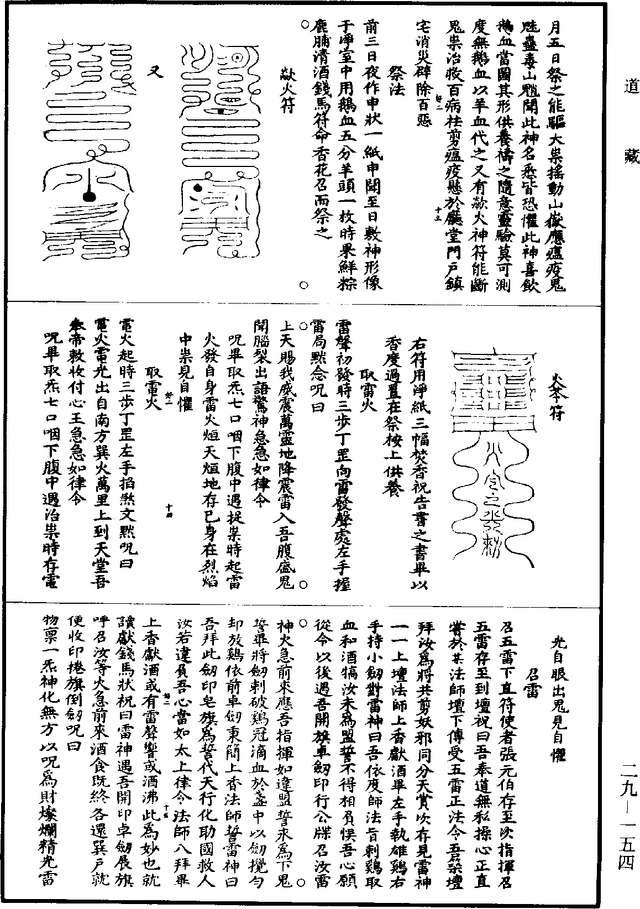 道藏
月五日祭之能驅大祟搖動山嶽應瘟疫鬼
魅蠱毒山魈聞此神名悉皆恐懼此神喜飲
鵝血當圖其形供養禱之隨意靈驗莫可測
度無鵝血以羊血代之又有歘火神符能斷
鬼祟治妝百病柱剪瘟疫懸於廳堂門戶鎮
宅消災辟除百惡
祭法
前三日夜作申狀一紙申聞至日敷神形像
于淨室中用鵝血五分羊頭一枚時果鮮粽
鹿脯清酒錢馬符命香花召而祭之
歘火符
又
火本符
火令之發勑
右符用淨紙三幅焚香祝告書之書畢以
香度過置在祭按上供養
取雷火
雷聲初發時三步丁罡向雷發聲處左手握
雷局默念呪曰
上天賜我威震萬靈地降震雷入吾腹盛鬼
聞腦裂出語驚神急急如律令
呪畢取炁七口咽下腹中遇捉祟時起雷
火發自身雷火烜天烜地存已身在烈焰
中祟見自懼
取電火
電火起時三步丁罡左手掐煞文默呪曰
電火雷光出自南方巽火萬里上到天堂吾
奉帝敕收付心王急急如律令
呪畢取炁七口咽下腹中遇治祟時存電
光自眼出鬼見自懼
召雷
召五雷下直符使者張元伯存至次指揮召
五雷存至到壇祝曰吾奉道無私操心正直
嘗於某法師壇下傳受五雷正法令吾登壇
拜汝爲將共剪妖邪同分天賞次存見雷神
一一上壇法師上香獻酒畢左手執雄鷄右
手持小劒對雷神曰吾依度師法旨刺鷄取
血和酒犒汝來爲盟誓不得相負悞吾心願
從今以後遇吾開旗卓劒印行公牒召汝雷
神火急前來應吾指揮如違盟誓永爲下鬼
誓畢將劒刺破鷄冠滴血於盞中以劒攪勻
却放鷄依前卓劒束簡上香法師誓雷神曰
吾拜此劒印皂旗爲誓代天行化助國救人
汝若違負吾心當如太上律令法師八拜畢
上香獻酒或有雷聲響或酒沸此爲妙也就
讀獻錢馬狀祝曰雷神遇吾開印卓劒展旗
呼召汝等火急前來酒食既終各還巽戶就
便收印捲旗倒劒呪曰
物稟一炁神化無方以呪爲財燦爛精光雷
二九—一五四